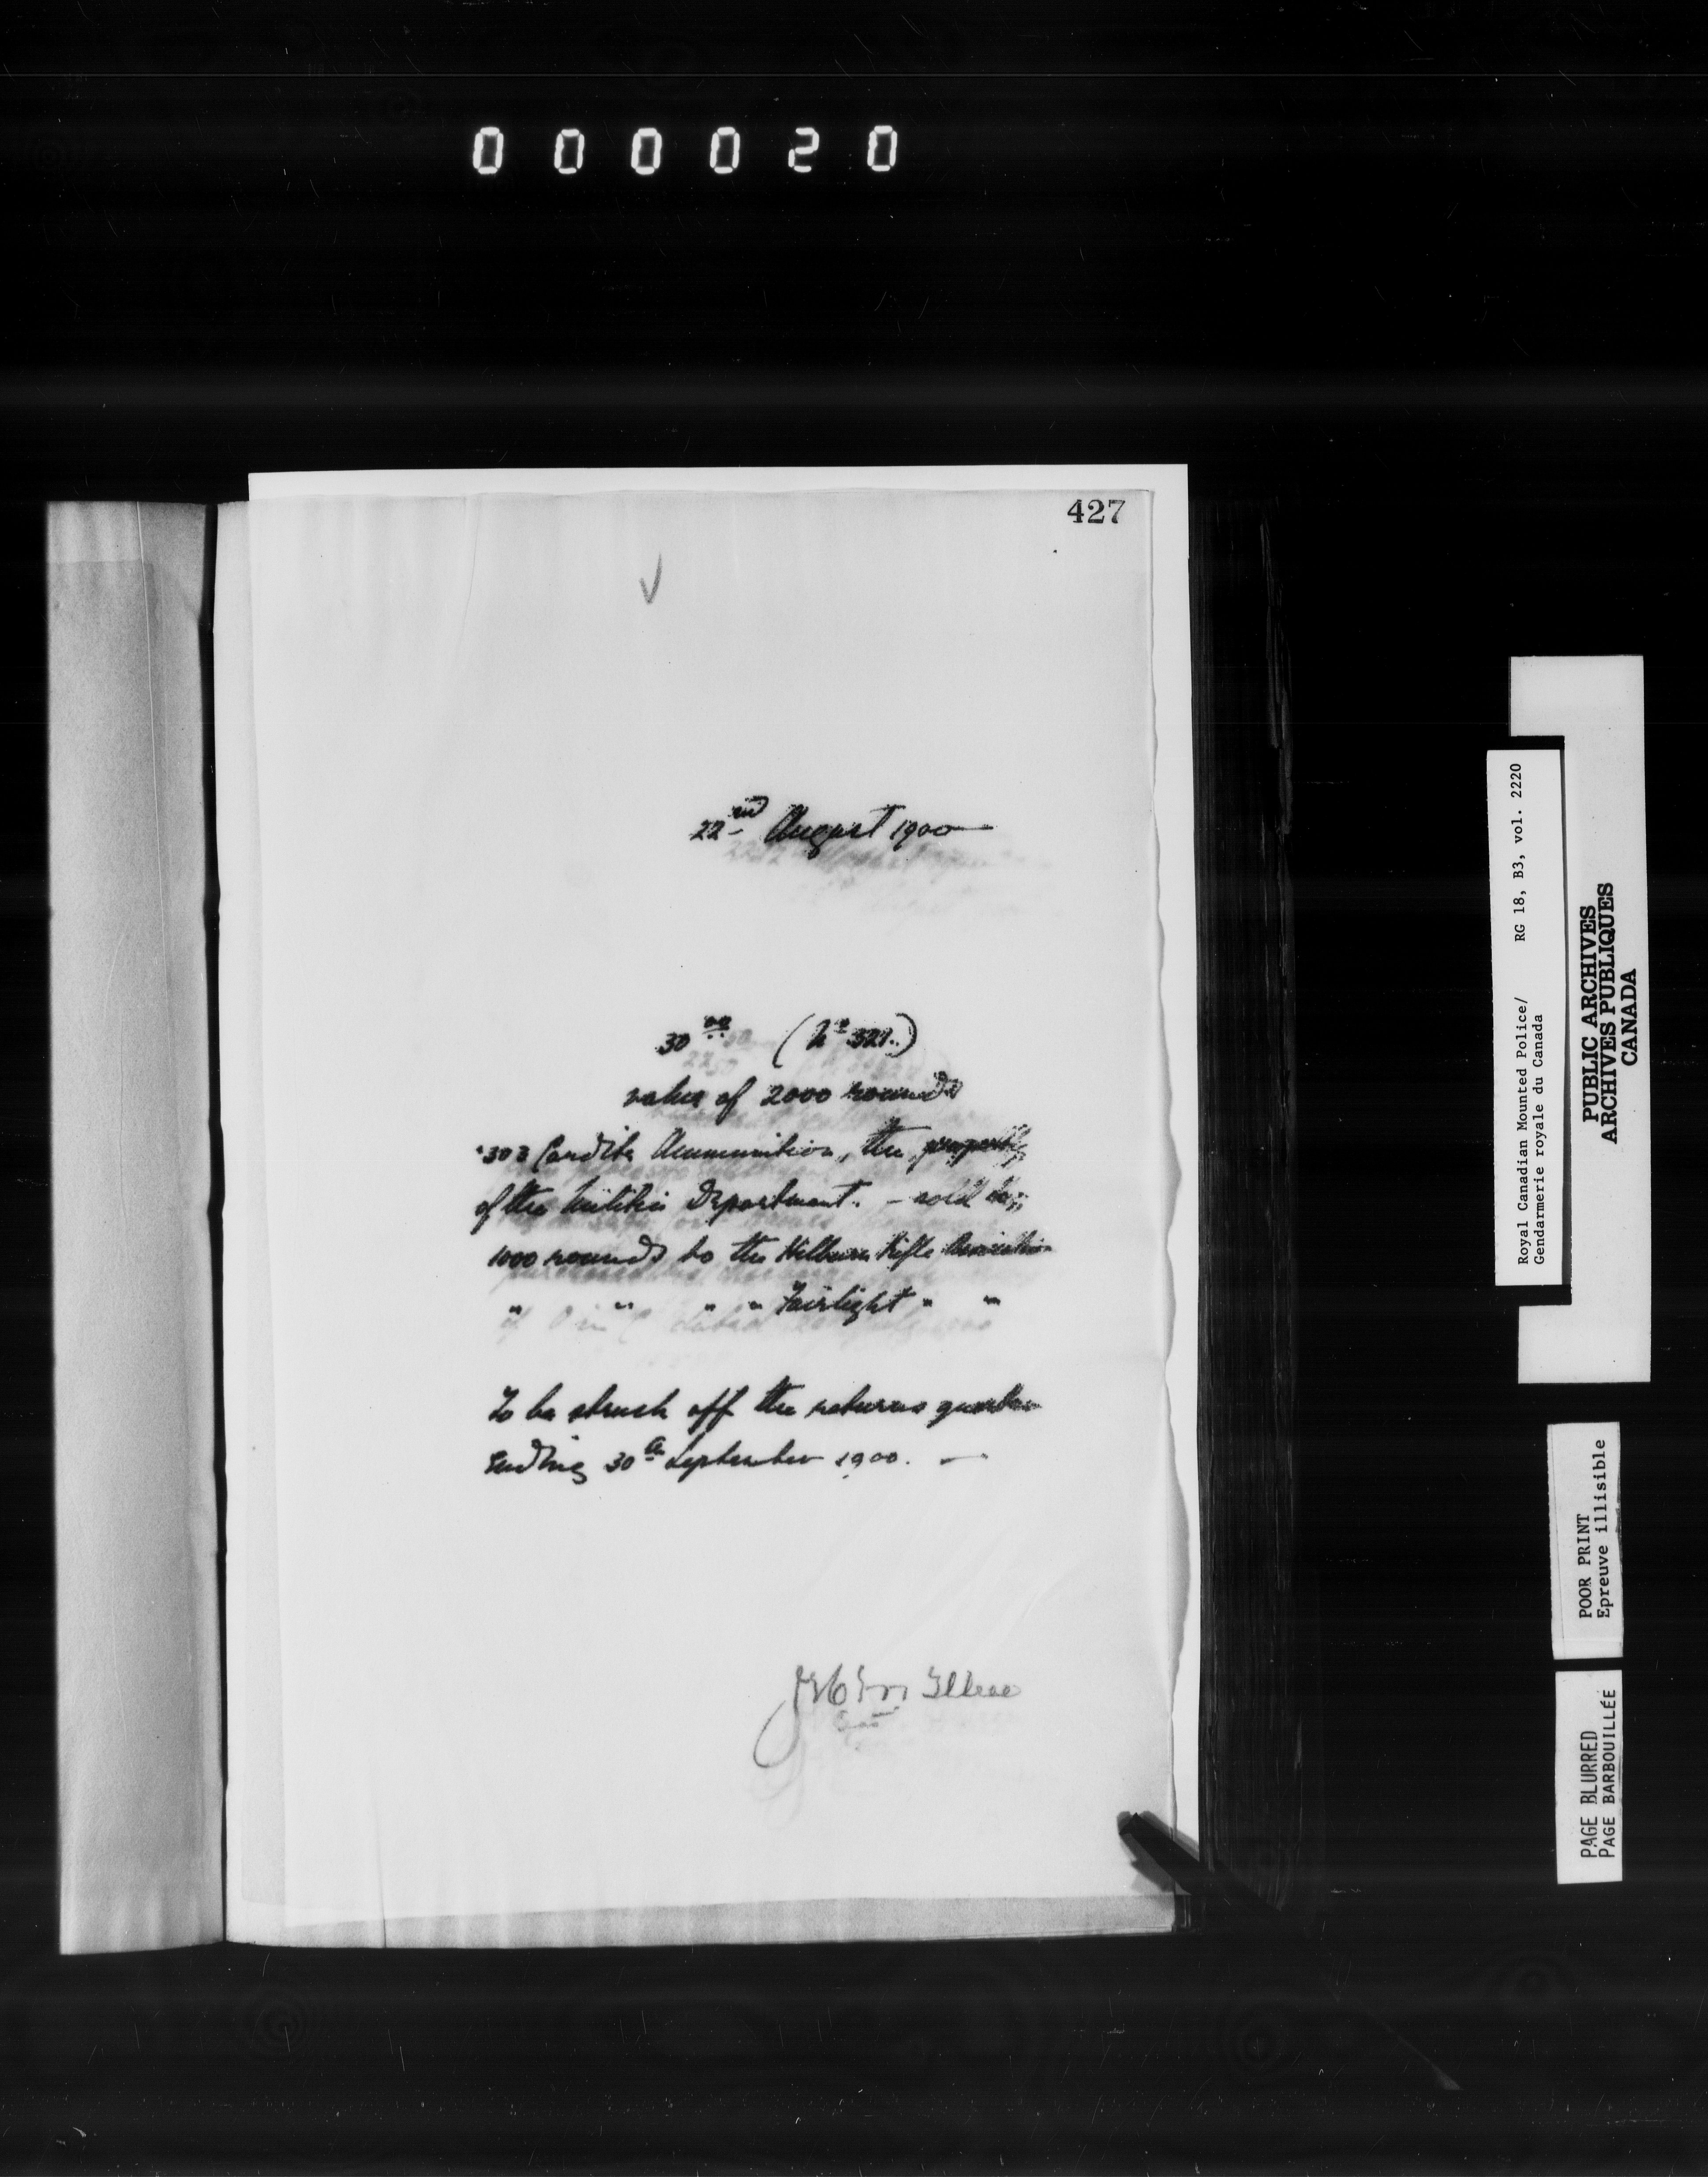 000020
427
22nd August 1900
30 00 (No 327.)
value of 2000 rounds
.303 Cordite Ammunition, the property
of the Militia Department. — sold to;
1000 rounds to the Rifle Association
" " " " Fairlight " "
To be struck off the returns quarter
Ending 30th September 1900. —
Royal Canadian Mounted Police/ RG 18, B3, vol. 2220
Gendarmerie royale du Canada
PUBLIC ARCHIVES
ARCHIVES PUBLIQUES
CANADA
POOR PRINT
Epreuve illisible
PAGE BLURRED
PAGE BARBOUILLÉE